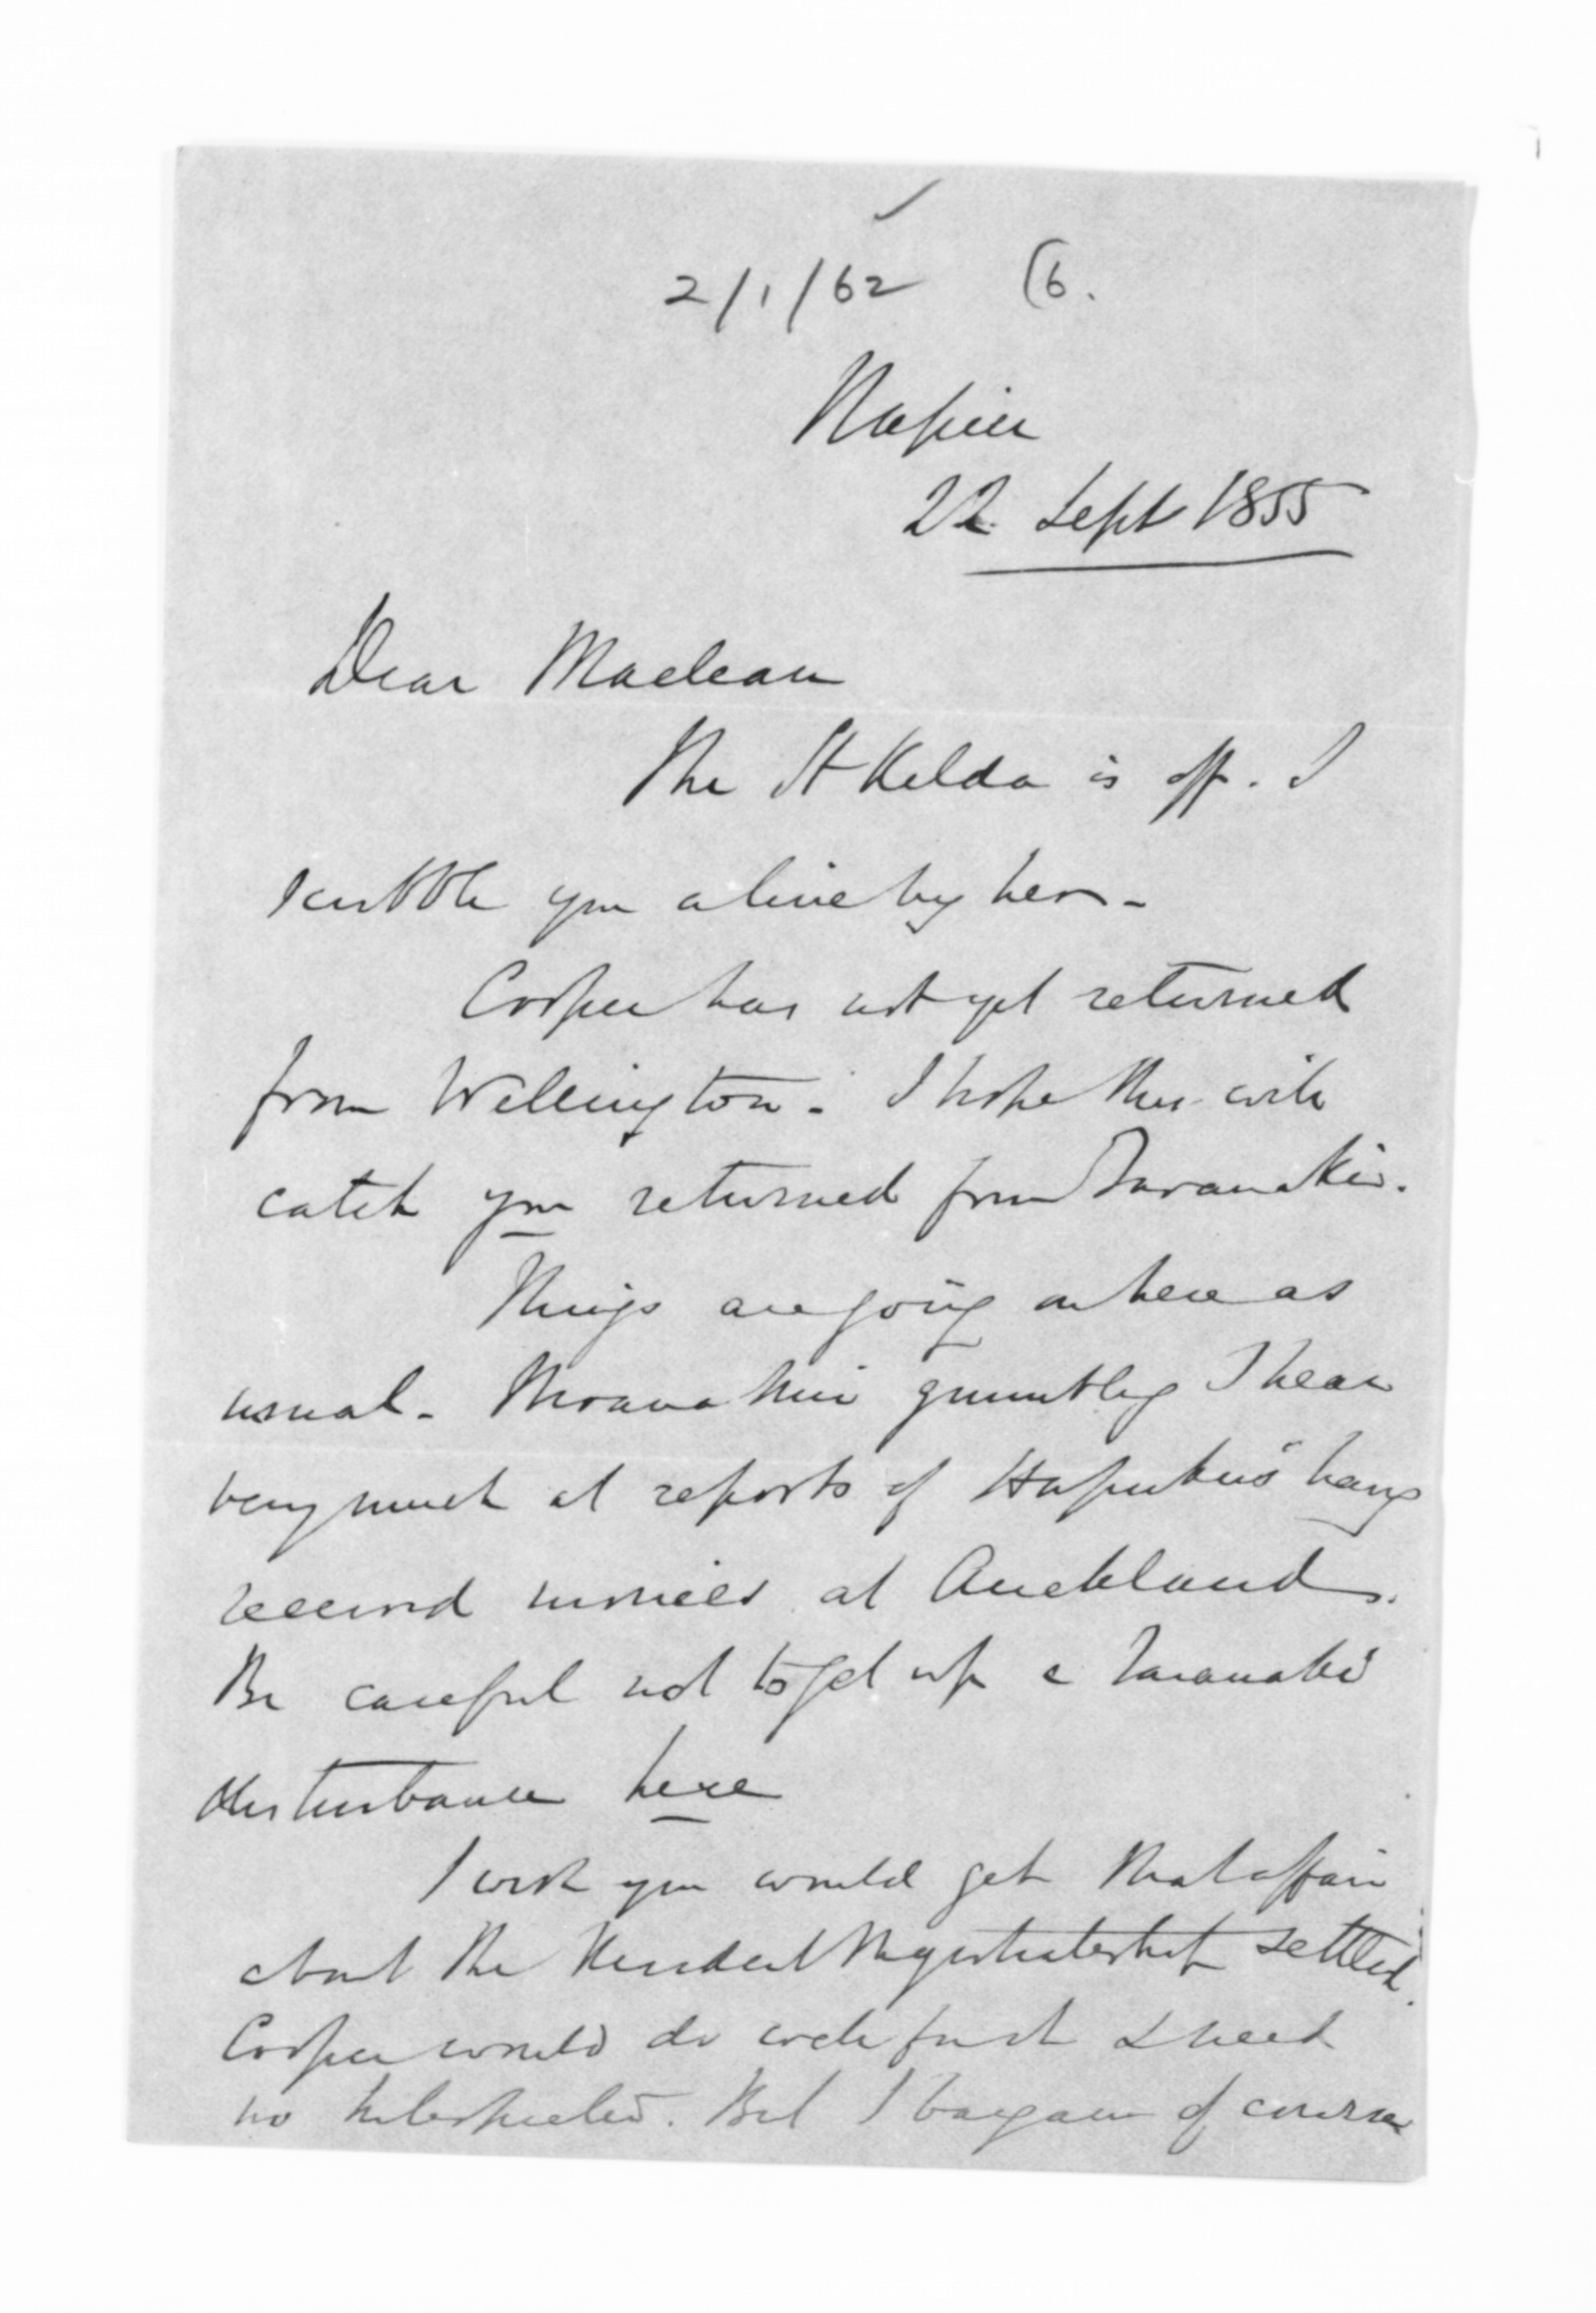 2/1/62 (6.
Napier
22 Sept 1855
Dear Maclean
The St Kilda is off. I
scribble you a line by her -
Cooper has not yet returned
from Wellington - I hope this will
catch you returned from Taranaki.
Things are going on here as
usual - Moananui grumbling I hear
very much at reports of Hapuku's having
received monies at Auckland.
Be careful not to get up a Taranaki
disturbance here
I wish you would get that affair
about the Resident Magistrateship settled.
Cooper would do well for it &
no. But I bargain of course